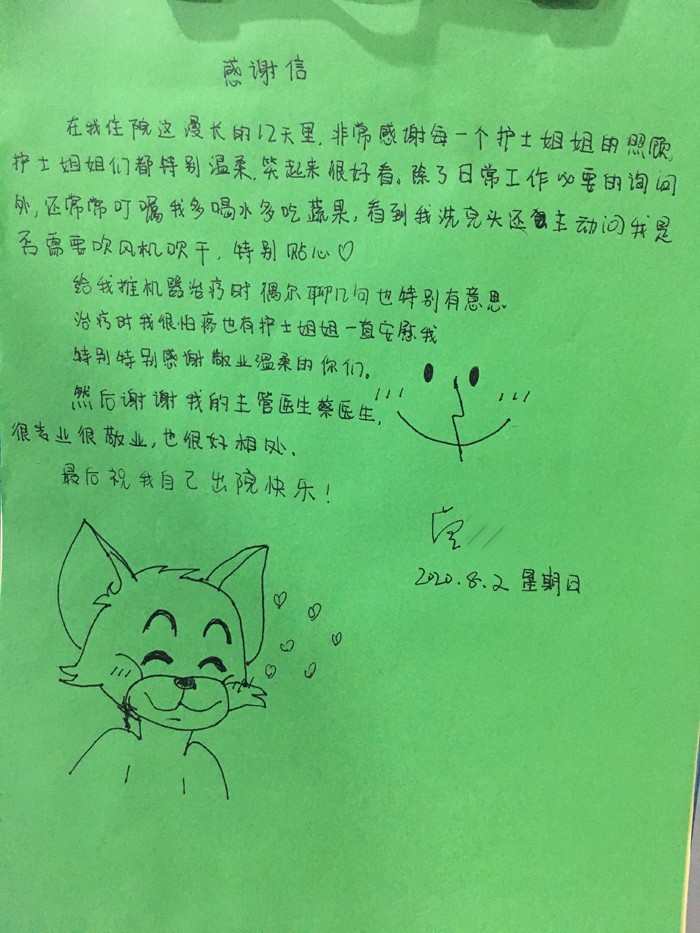 感谢信
在我住院这漫长的12天里，非常感谢每一个护士姐姐的照顾，
护士姐姐们都特别温柔，笑起来很好看。除了日常工作必要的询问
外，还常常叮嘱我多喝水多吃蔬果，看到我洗完头还主动问我是
否需要吹风机吹干，特别贴心♡
给我推机器治疗时偶尔聊几句也特别有意思
治疗时我很怕疼也有护士姐姐一直安慰我
特别特别感谢敬业温柔的你们。
然后谢谢我的主管医生蔡医生，
很专业很敬业，也很好相处．
最后祝我自己出院快乐！
2020.8.2 星期日